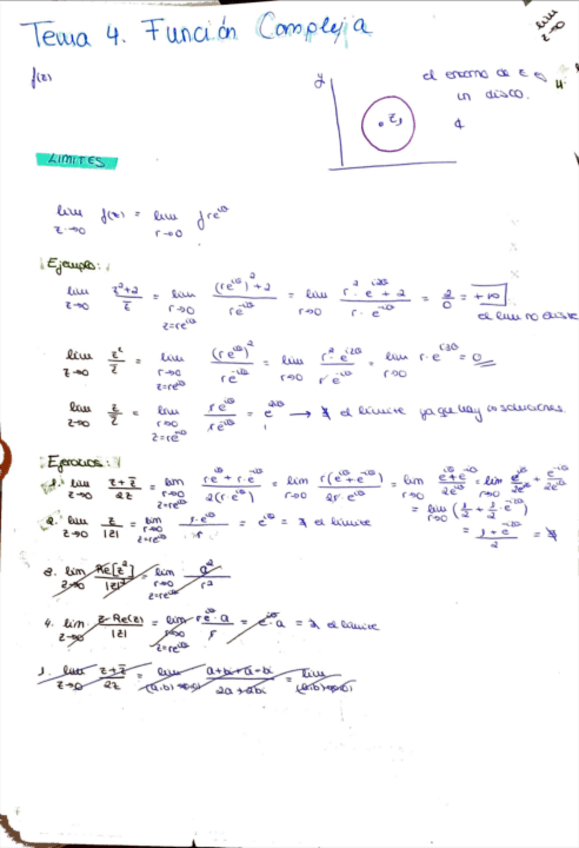 Tema 4. Función Compleja
lim z→0
f(z)
y
el entorno de z es
un disco.
z₁
LIMITES
lim z→0 f(z) = lim r→0 f re^{iθ}
Ejemplo:
lim z→0 (z²+2)/z̄ = lim r→0 z=re^{iθ} ((re^{iθ})²+2)/(re^{-iθ}) = lim r→0 (r²·e^{i2θ}+2)/(r·e^{-iθ}) = 2/0 = +∞
el lim no existe
lim z→0 z²/z̄ = lim r→0 z=re^{iθ} (re^{iθ})²/(re^{-iθ}) = lim r→0 (r²·e^{i2θ})/(r e^{-iθ}) = lim r→0 r·e^{i3θ} = 0
lim z→0 z/z̄ = lim r→0 z=re^{iθ} (re^{iθ})/(re^{-iθ}) = e^{2iθ} → ∄ el límite ya que hay ∞ soluciones.
Ejercicios:
1. lim z→0 (z+z̄)/2z = lim r→0 z=re^{iθ} (re^{iθ}+r·e^{-iθ})/(2(r·e^{iθ})) = lim r→0 (r(e^{iθ}+e^{-iθ}))/(2r·e^{iθ}) = lim r→0 (e^{iθ}+e^{-iθ})/(2e^{iθ}) = lim r→0 e^{iθ}/(2e^{iθ}) + e^{-iθ}/(2e^{iθ})
= lim r→0 (1/2 + 1/2·e^{-i2θ})
2. lim z→0 z/|z| = lim r→0 z=re^{iθ} (r·e^{iθ})/r = e^{iθ} = ∄ el límite
= (1+e^{-i2θ})/2 = ∄
3. lim z→0 Re[z²]/|z|² = lim r→0 z=re^{iθ} a²/r²
4. lim z→0 (z·Re(z))/|z| = lim r→0 z=re^{iθ} (re^{iθ}·a)/r = e^{iθ}·a = ∄ el límite
1. lim z→0 (z+z̄)/2z = lim (a,b)→(0,0) (a+bi+a-bi)/(2a+2bi) = lim (a,b)→(0,0)